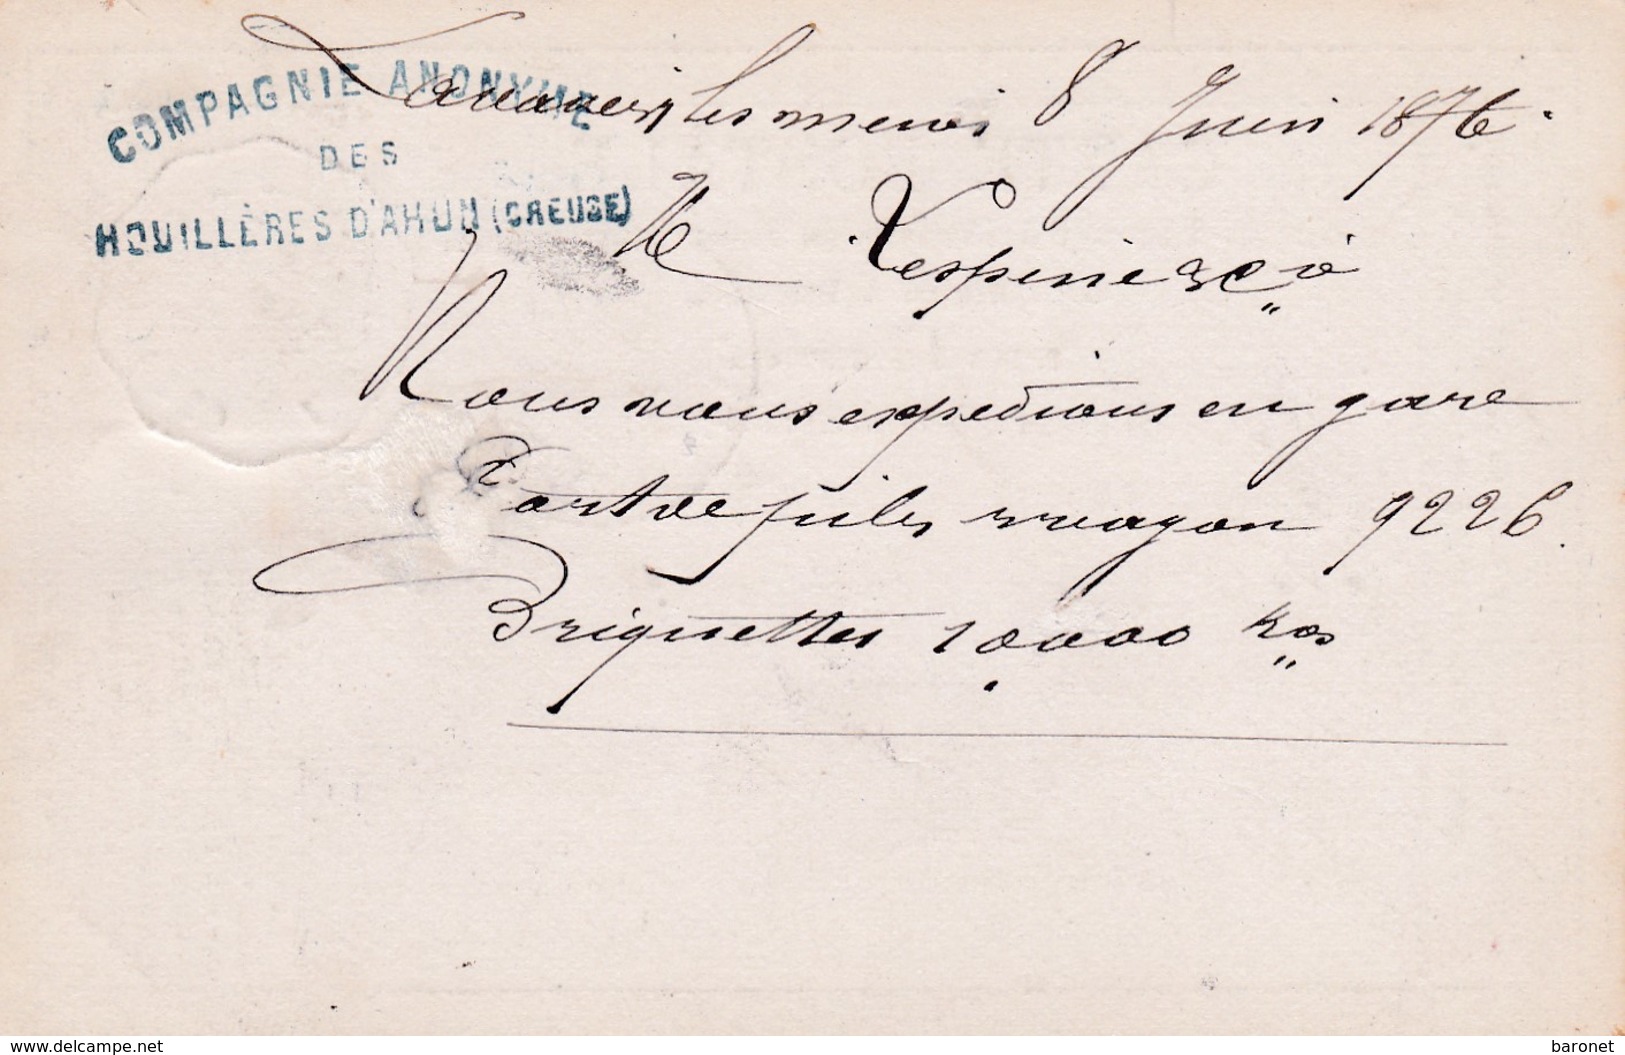 COMPAGNIE ANONYME
DES
HOUILLÈRES D'AHUN (CREUSE)
Lavaveix les mines 8 Juin 1876.
Mr Lespinie & Cie
Nous vous expédions en gare
Port de piles wagon 9226.
Briquettes 10000 kos
www.delcampe.net
baronet